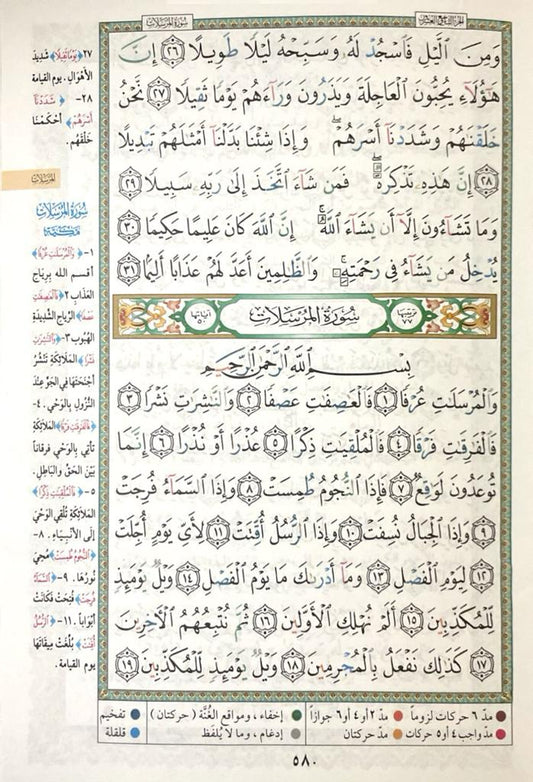 الجزء التاسع والعشرون
سُورَةُ المُرْسَلَات
وَمِنَ ٱلَّيْلِ فَٱسْجُدْ لَهُۥ وَسَبِّحْهُ لَيْلًا طَوِيلًا ٢٦ إِنَّ
هَٰٓؤُلَآءِ يُحِبُّونَ ٱلْعَاجِلَةَ وَيَذَرُونَ وَرَآءَهُمْ يَوْمًا ثَقِيلًا ٢٧ نَّحْنُ
خَلَقْنَٰهُمْ وَشَدَدْنَآ أَسْرَهُمْ ۖ وَإِذَا شِئْنَا بَدَّلْنَآ أَمْثَٰلَهُمْ تَبْدِيلًا
٢٨ إِنَّ هَٰذِهِۦ تَذْكِرَةٌ ۖ فَمَن شَآءَ ٱتَّخَذَ إِلَىٰ رَبِّهِۦ سَبِيلًا ٢٩
وَمَا تَشَآءُونَ إِلَّآ أَن يَشَآءَ ٱللَّهُ ۚ إِنَّ ٱللَّهَ كَانَ عَلِيمًا حَكِيمًا ٣٠
يُدْخِلُ مَن يَشَآءُ فِى رَحْمَتِهِۦ ۚ وَٱلظَّٰلِمِينَ أَعَدَّ لَهُمْ عَذَابًا أَلِيمًۢا ٣١
ترتيبها ٧٧
سُورَةُ المُرْسَلَات
آياتها ٥٠
بِسْمِ ٱللَّهِ ٱلرَّحْمَٰنِ ٱلرَّحِيمِ
وَٱلْمُرْسَلَٰتِ عُرْفًا ١ فَٱلْعَٰصِفَٰتِ عَصْفًا ٢ وَٱلنَّٰشِرَٰتِ نَشْرًا ٣
فَٱلْفَٰرِقَٰتِ فَرْقًا ٤ فَٱلْمُلْقِيَٰتِ ذِكْرًا ٥ عُذْرًا أَوْ نُذْرًا ٦ إِنَّمَا
تُوعَدُونَ لَوَٰقِعٌ ٧ فَإِذَا ٱلنُّجُومُ طُمِسَتْ ٨ وَإِذَا ٱلسَّمَآءُ فُرِجَتْ
٩ وَإِذَا ٱلْجِبَالُ نُسِفَتْ ١٠ وَإِذَا ٱلرُّسُلُ أُقِّتَتْ ١١ لِأَىِّ يَوْمٍ أُجِّلَتْ
١٢ لِيَوْمِ ٱلْفَصْلِ ١٣ وَمَآ أَدْرَىٰكَ مَا يَوْمُ ٱلْفَصْلِ ١٤ وَيْلٌ يَوْمَئِذٍ
لِّلْمُكَذِّبِينَ ١٥ أَلَمْ نُهْلِكِ ٱلْأَوَّلِينَ ١٦ ثُمَّ نُتْبِعُهُمُ ٱلْءَاخِرِينَ
١٧ كَذَٰلِكَ نَفْعَلُ بِٱلْمُجْرِمِينَ ١٨ وَيْلٌ يَوْمَئِذٍ لِّلْمُكَذِّبِينَ ١٩
٢٧ ﴿يَوْمًا ثَقِيلًا﴾ شَدِيدَ
الأهْوَالِ. يوم القيامة
٢٨- ﴿شَدَدْنَآ
أَسْرَهُمْ﴾ أَحْكَمْنَا
خَلْقَهُم.
المُرْسَلَات
سُورَةُ المُرْسَلَات
مَكِّيَّة
١- ﴿وَٱلْمُرْسَلَٰتِ عُرْفًا﴾
أقسم الله بِرِيَاحِ
العَذَابِ ٢ ﴿فَٱلْعَٰصِفَٰتِ
عَصْفًا﴾ الرِّيَاحِ الشَّدِيدَةِ
الهُبُوبِ ٣- ﴿وَٱلنَّٰشِرَٰتِ
نَشْرًا﴾ المَلَائِكَةِ تَنْشُرُ
أجْنِحَتَهَا في الجَوِّ عِنْدَ
النُّزُولِ بِالوَحْيِ. ٤-
﴿فَٱلْفَٰرِقَٰتِ فَرْقًا﴾ المَلَائِكَةِ
تأتِي بالوَحْيِ فرقاناً
بَيْنَ الحَقِّ والبَاطِلِ.
٥- ﴿فَٱلْمُلْقِيَٰتِ ذِكْرًا﴾
المَلَائِكَةِ تُلْقِي الوَحْيَ
إلى الأنْبِيَاءِ. ٨-
﴿ٱلنُّجُومُ طُمِسَتْ﴾ مُحِيَ
نُورُهَا. ٩- ﴿ٱلسَّمَآءُ
فُرِجَتْ﴾ فُتِحَتْ فَكَانَتْ
أبْوَاباً. ١١- ﴿ٱلرُّسُلُ
أُقِّتَتْ﴾ بُلِّغَتْ مِيقَاتَهَا
يوم القيامة.
مدّ ٦ حركات لزوماً مدّ ٢ أو ٤ أو ٦ جوازاً إخفاء، ومواقع الغُنَّة (حركتان) تفخيم
مدّ واجب ٤ أو ٥ حركات مدّ حركتان إدغام، وما لا يُلفَظ قلقلة
٥٨٠